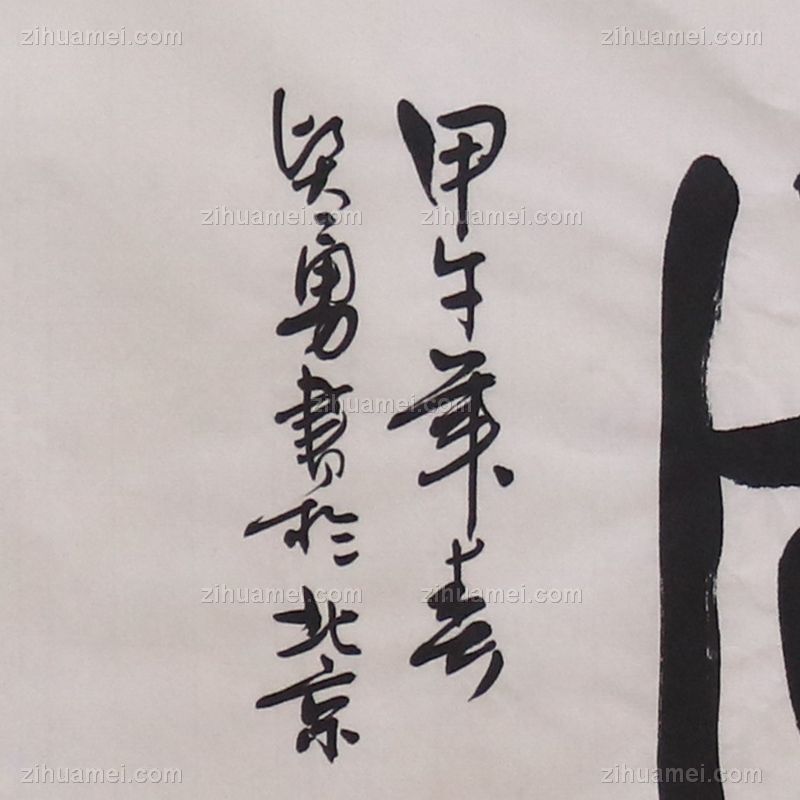 zihuamei.com zihuamei.com
甲午年春
梁勇書於北京
zihuamei.com zihuamei.com
zihuamei.com
zihuamei.com zihuamei.com
zihuamei.com zihuamei.com